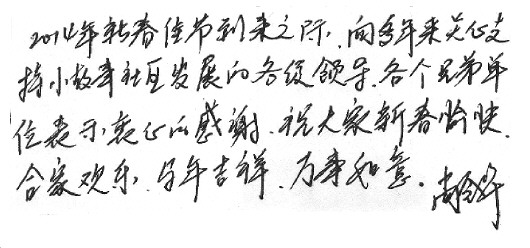 2014年新春佳节到来之际,向多年来关心支
持小故事社区发展的各级领导、各个兄弟单
位表示衷心的感谢。祝大家新春愉快、
合家欢乐、马年吉祥、万事如意。